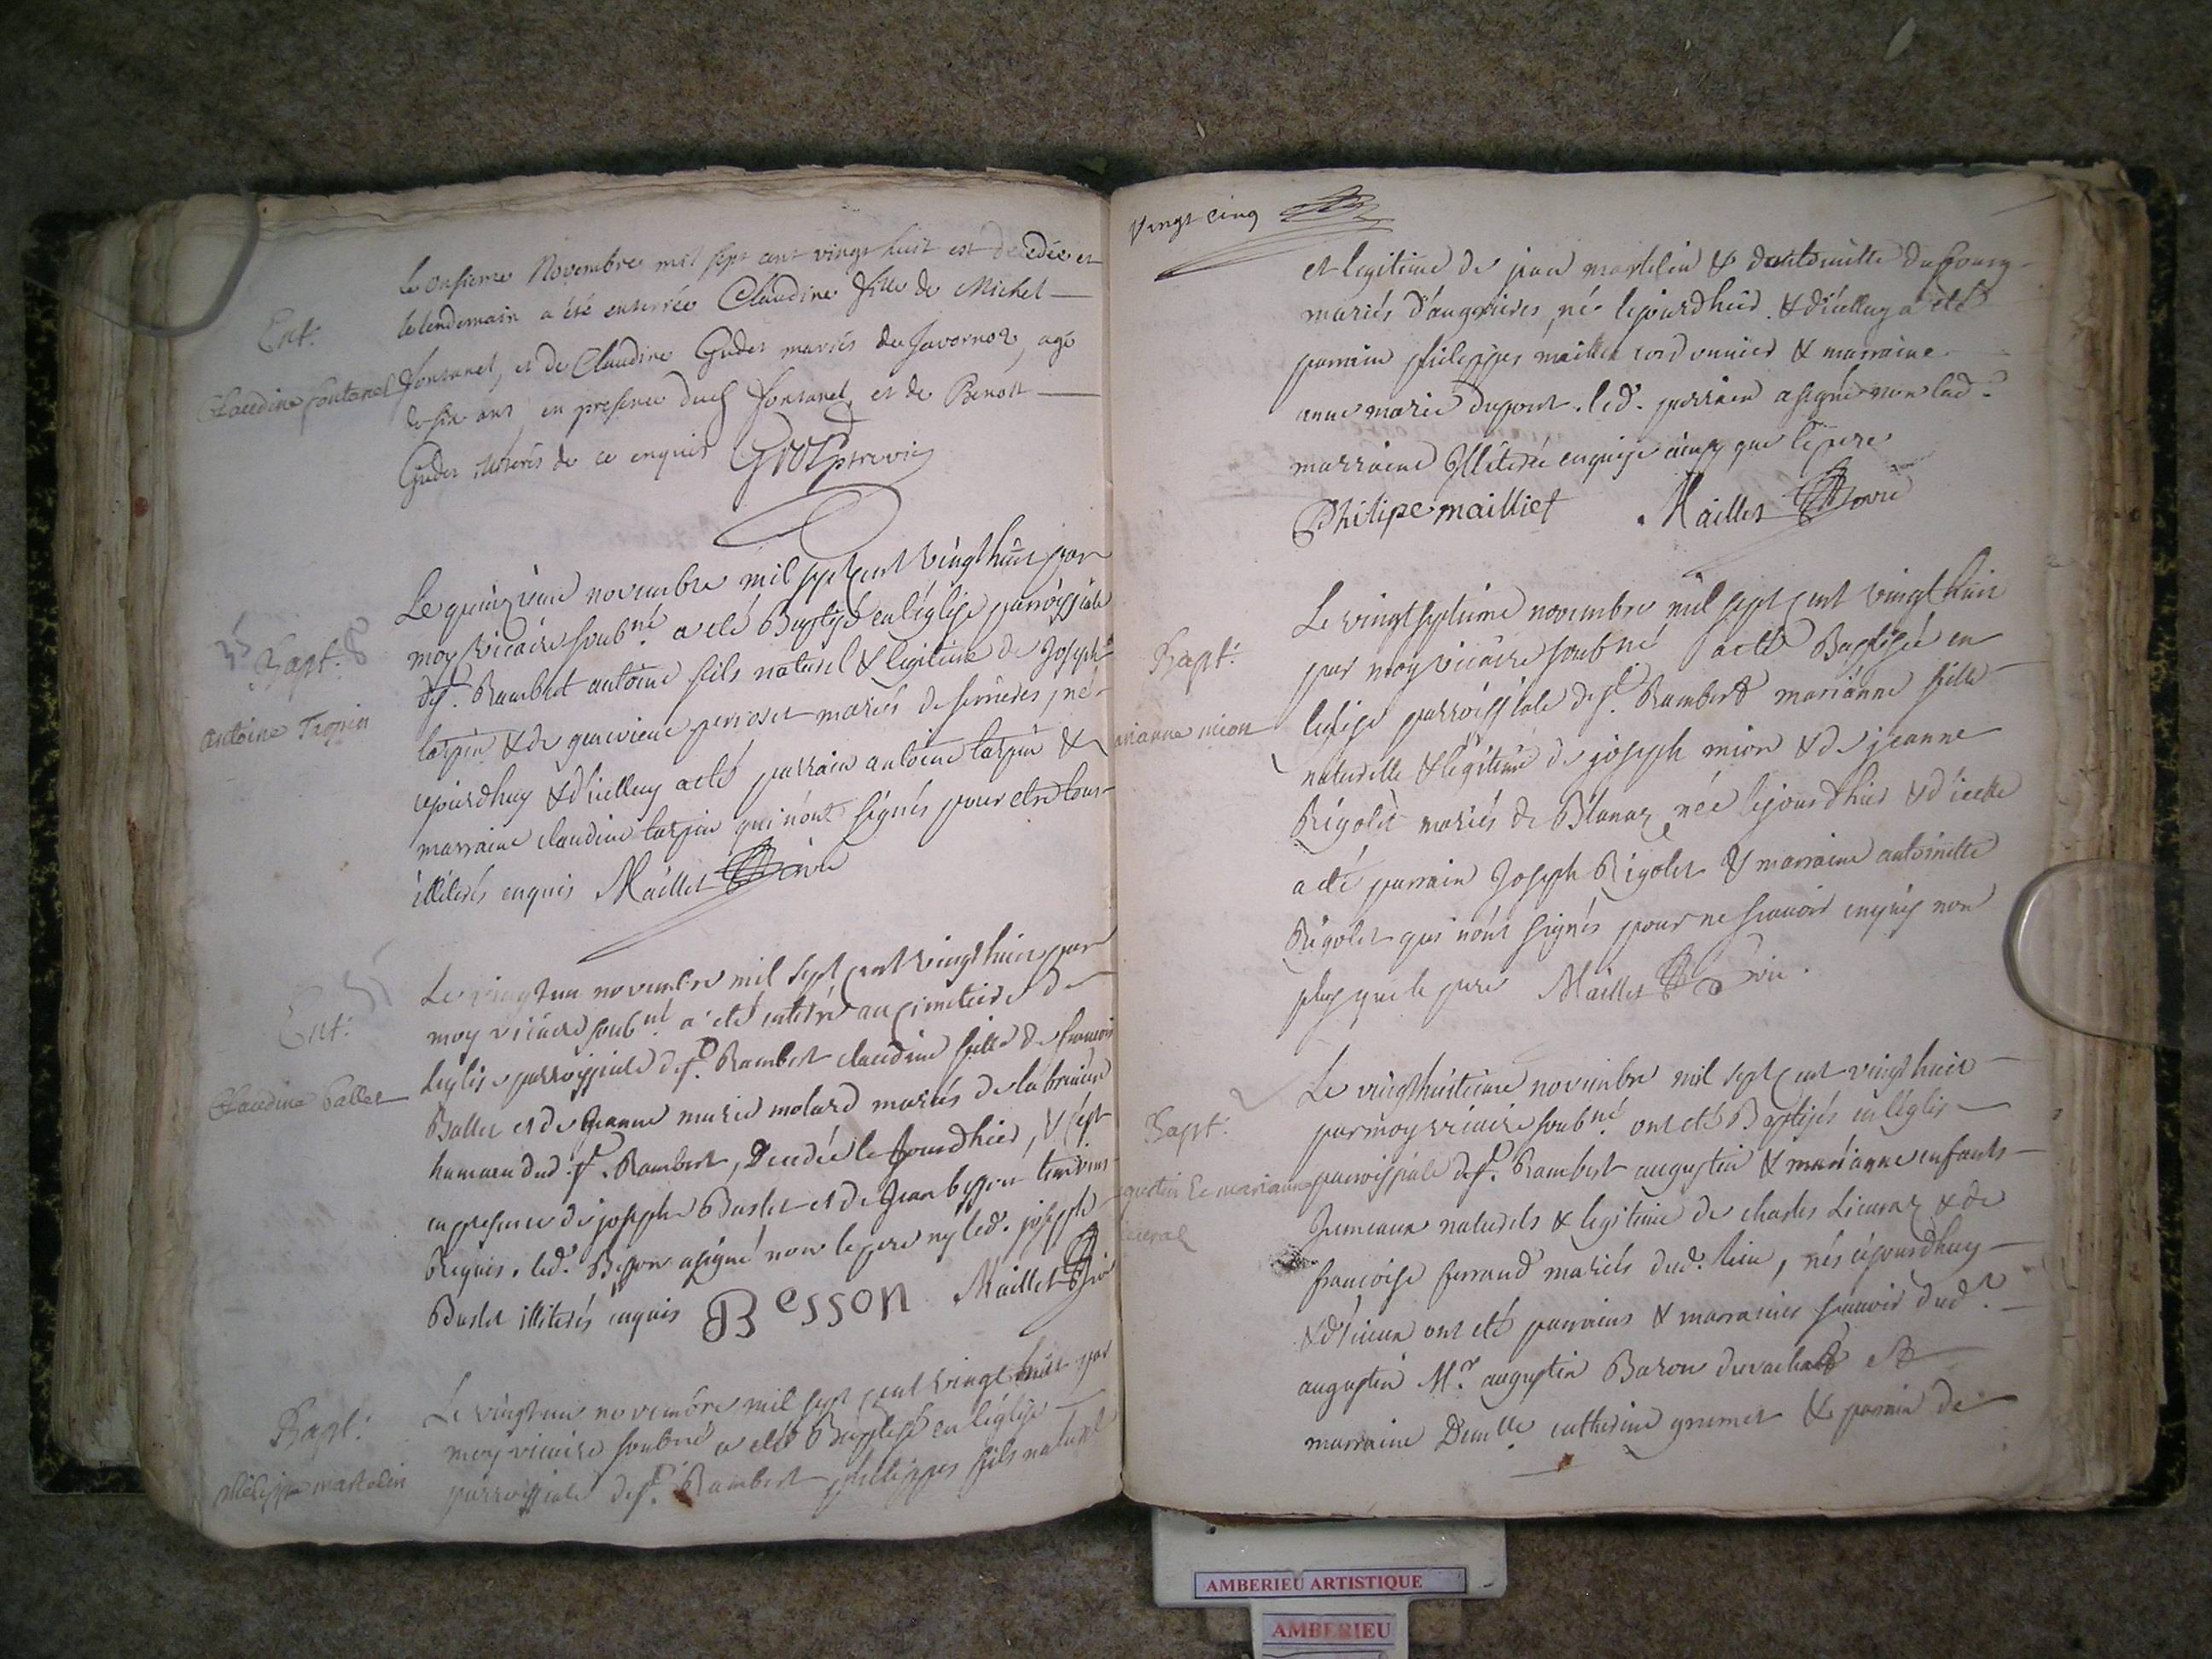 Ent:
Claudine fontanel
le onsieme Novembre mil sept cent vingt huit est decedée et
le lendemain a été enterrée Claudine fille de Michel
fontanel, et de Claudine Guder mariés de Javornoz, agé
de six ans en presence dud fontanel et de Benoit
Guder illiterés de ce enquis
Bapt:
antoine
Le quinzieme novembre mil sept cent vingt huit par
moy vicaire soubné a eté Baptisé en l'église parroissiale
de St. Rambert antoine fils naturel & legitime de Joseph
tarpin & de genevieve perroset mariés de serrieres, né
cejourdhuy & d'icelluy a eté parrain antoine tarpin &
marraine claudine tarpin qui n'ont signés pour etre tous
illiterés enquis Maillet vic
Ent:
Claudine ballet
Le vingt un novembre mil sept cent vingt huit par
moy vicaire soubné a eté enterré au cimetiere de
l'eglise parroissiale de St. Rambert claudine fille de françois
Ballet et de Jeanne marie molard mariés de la
hameau dud. St. Rambert, decedée le jourdhier, & c'est
en presence de joseph Buslet et de Jean besson temoins
Requis. led. Besson a signé non le pere ny led. joseph
Buslet illiterés enquis Besson Maillet vic
Bapt:
philippe martelin
Le vingt un novembre mil sept cent vingt huit par
moy vicaire soubné a eté Baptisé en l'église
parroissiale de St. Rambert philippes fils naturel
Vingt cinq
et legitime de jean martelin & d'antoinette dufourg
mariés d'angrieres, né le jourdhier & d'icelluy a eté
parrain philippes maillet cordonnier & marraine
anne marie dupont. led. parrain a signé non lad.
marraine Illiterée enquise ainsy que le pere
Philipe mailliet Maillet vic
Bapt:
arianne mion
Le vingt septieme novembre mil sept cent vingt huit
par moy vicaire soubné a eté Baptisée en
l'eglise parroissiale de St. Rambert marianne fille
naturelle & legitime de joseph mion & de jeanne
Rigolet mariés de Blanaz née le jourdhier & d'icelle
a eté parrain Joseph Rigolet & marraine antoinette
Rigolet qui n'ont signés pour ne scavoir enquis non
plus que le pere Maillet vic.
Bapt:
gustin & marianne
Le vingt huitieme novembre mil sept cent vingt huit
par moy vicaire soubné ont eté Baptisés en l'église
parroissiale de St. Rambert augustin & marianne enfants
Jumeaux naturels & legitime de charles Lieuraz & de
françoise ferrand mariés dud. lieu, nés cejourdhuy
& d'iceux ont eté parrains & marraines scavoir dud.
augustin Mr. augustin Baron duvachat et
marraine Demlle. catherine grumet & parrain de
AMBERIEU ARTISTIQUE
AMBERIEU